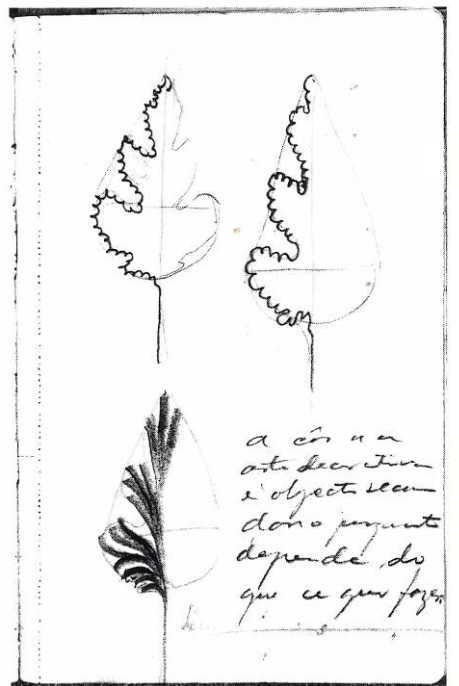 a côr na
arte decorativa
é objecto secun
dario porquanto
depende do
que se quer fazer